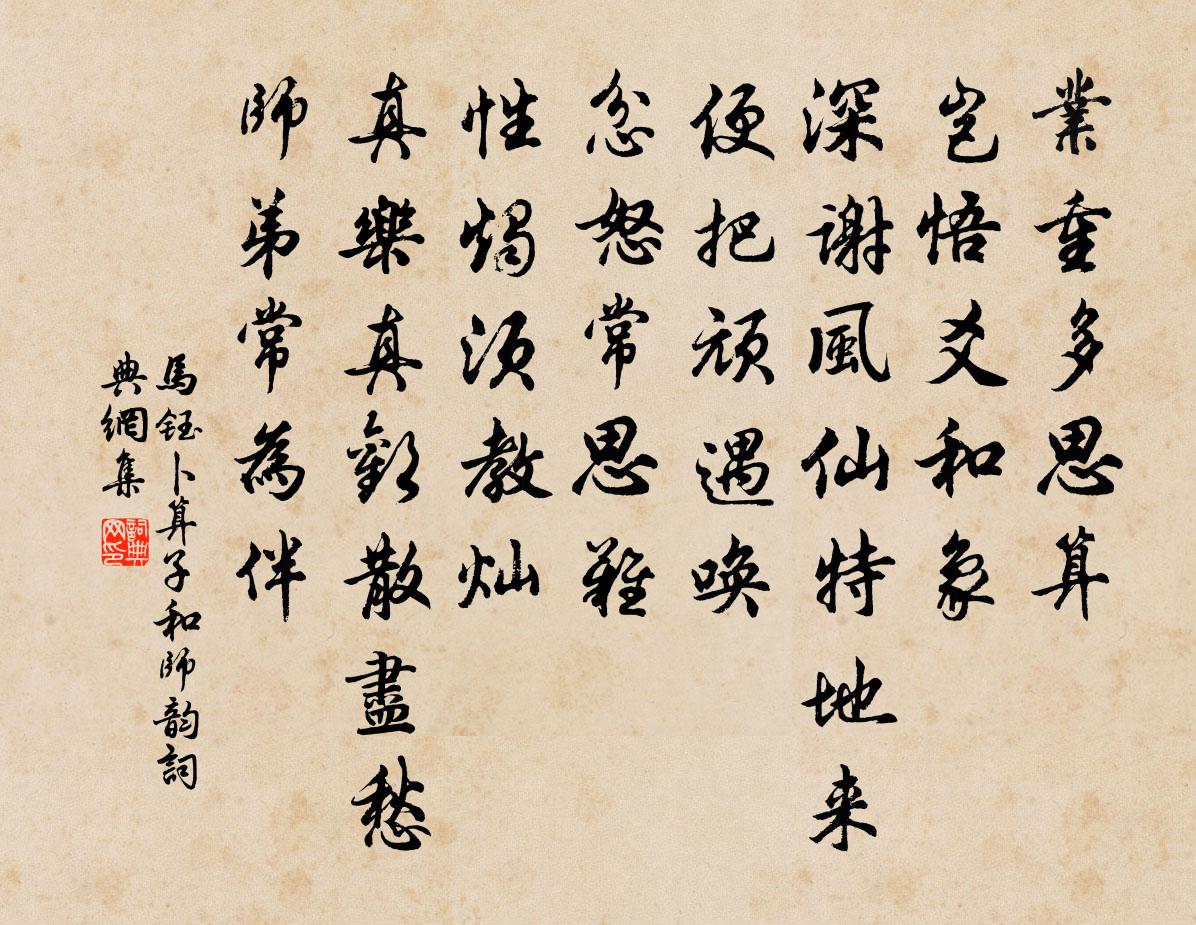 業重多思算
豈悟爻和象
深謝風仙特地来
便把頑遇喚
忿怒常思難
性燭須教灿
真樂真歡散盡愁
師弟常為伴
馬鈺卜算子和師韵詞
典網集
詞典网印